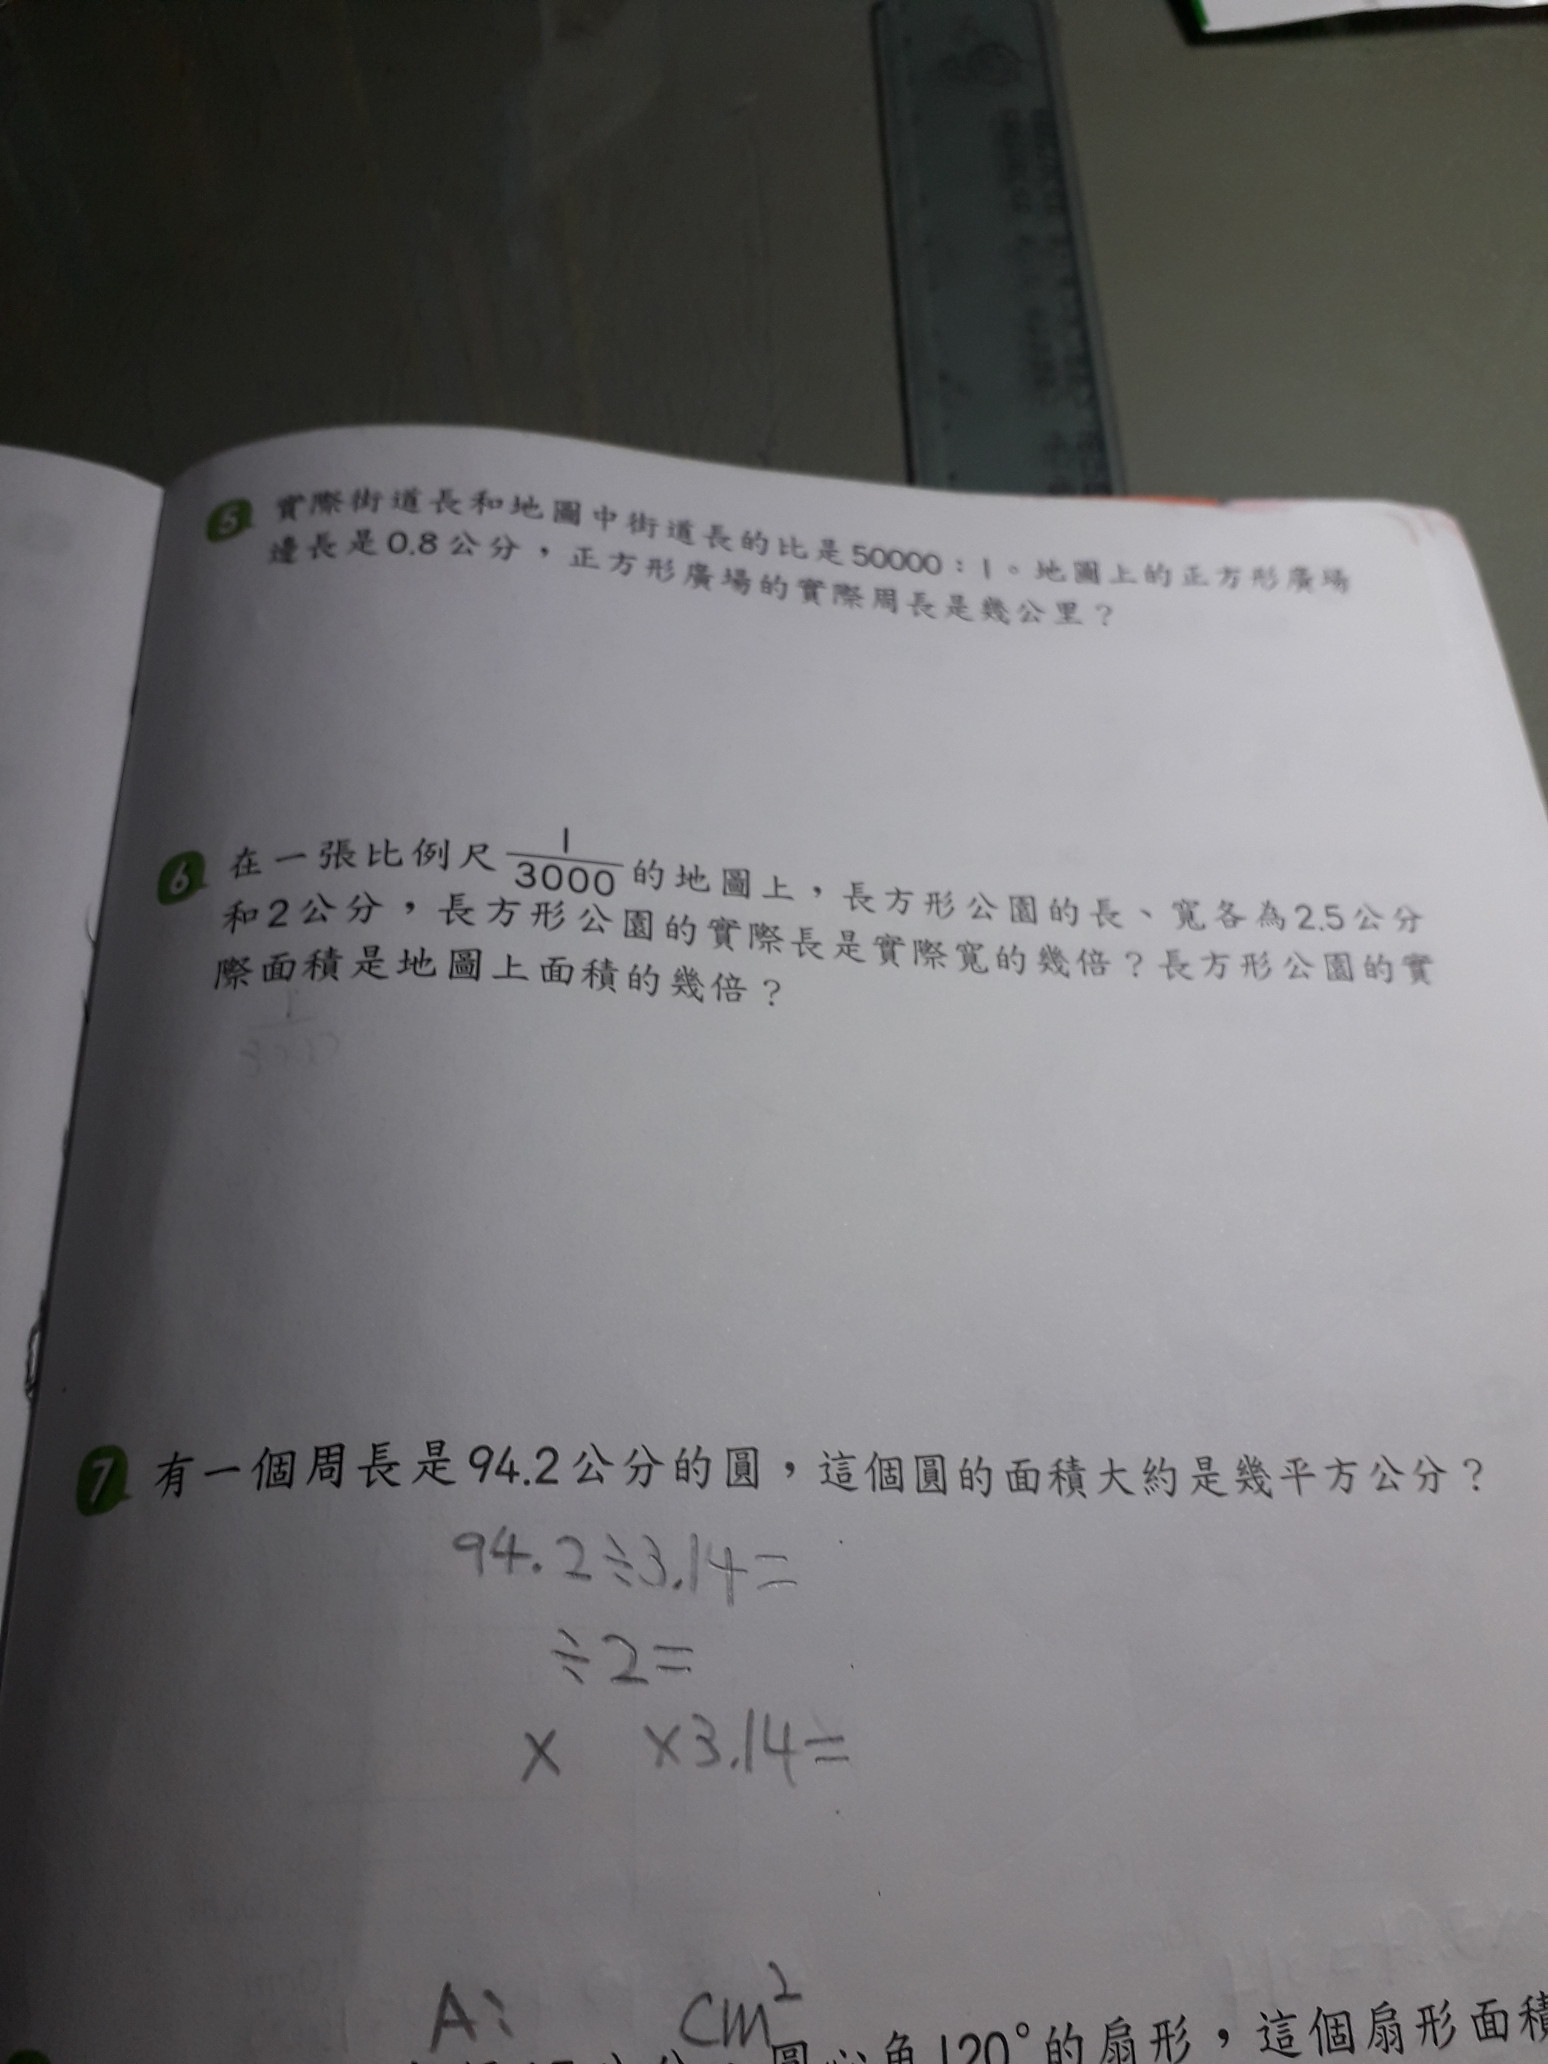 5 實際街道長和地圖中街道長的比是50000：1。地圖上的正方形廣場
邊長是0.8公分，正方形廣場的實際周長是幾公里？
6 在一張比例尺 1/3000 的地圖上，長方形公園的長、寬各為2.5公分
和2公分，長方形公園的實際長是實際寬的幾倍？長方形公園的實
際面積是地圖上面積的幾倍？
7 有一個周長是94.2公分的圓，這個圓的面積大約是幾平方公分？
94.2÷3.14=
÷2=
× ×3.14=
A: cm²
圓心角120°的扇形，這個扇形面積